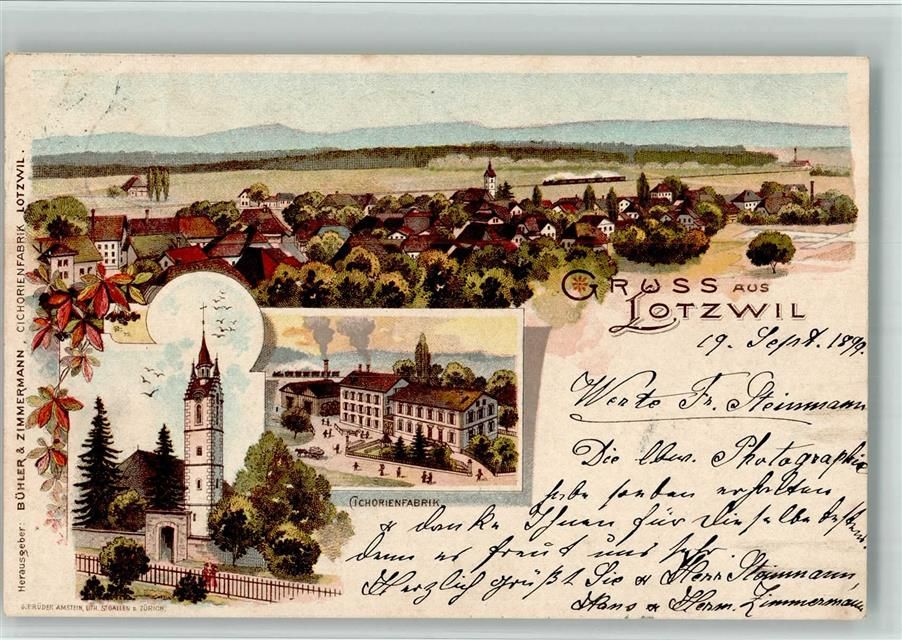 Herausgeber: BÜHLER & ZIMMERMANN, CICHORIENFABRIK LOTZWIL.
GRUSS AUS
LOTZWIL
19. Sept. 1899.
Werte Fr. Steinmann
Die bew. Photographie
habe soeben erhalten
& danke Ihnen für dieselbe bestens
denn es freut uns sehr.
Herzlich grüßt Sie & Herr Steinmann,
Hans & Herm. Zimmermann
CICHORIENFABRIK
GEBRÜDER AMSTEIN, LITH. ST. GALLEN & ZÜRICH.